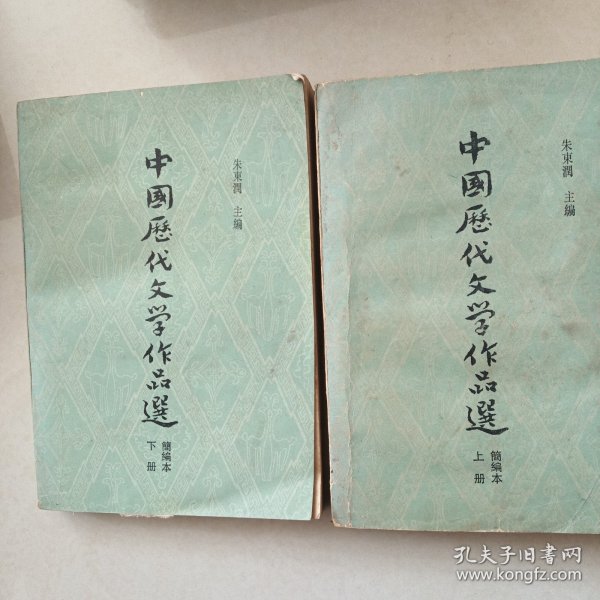 朱東潤 主编
中國歷代文学作品選
簡編本
下册
朱東潤 主编
中國歷代文学作品選
簡編本
上册
孔夫子旧书网
www.kongfz.com